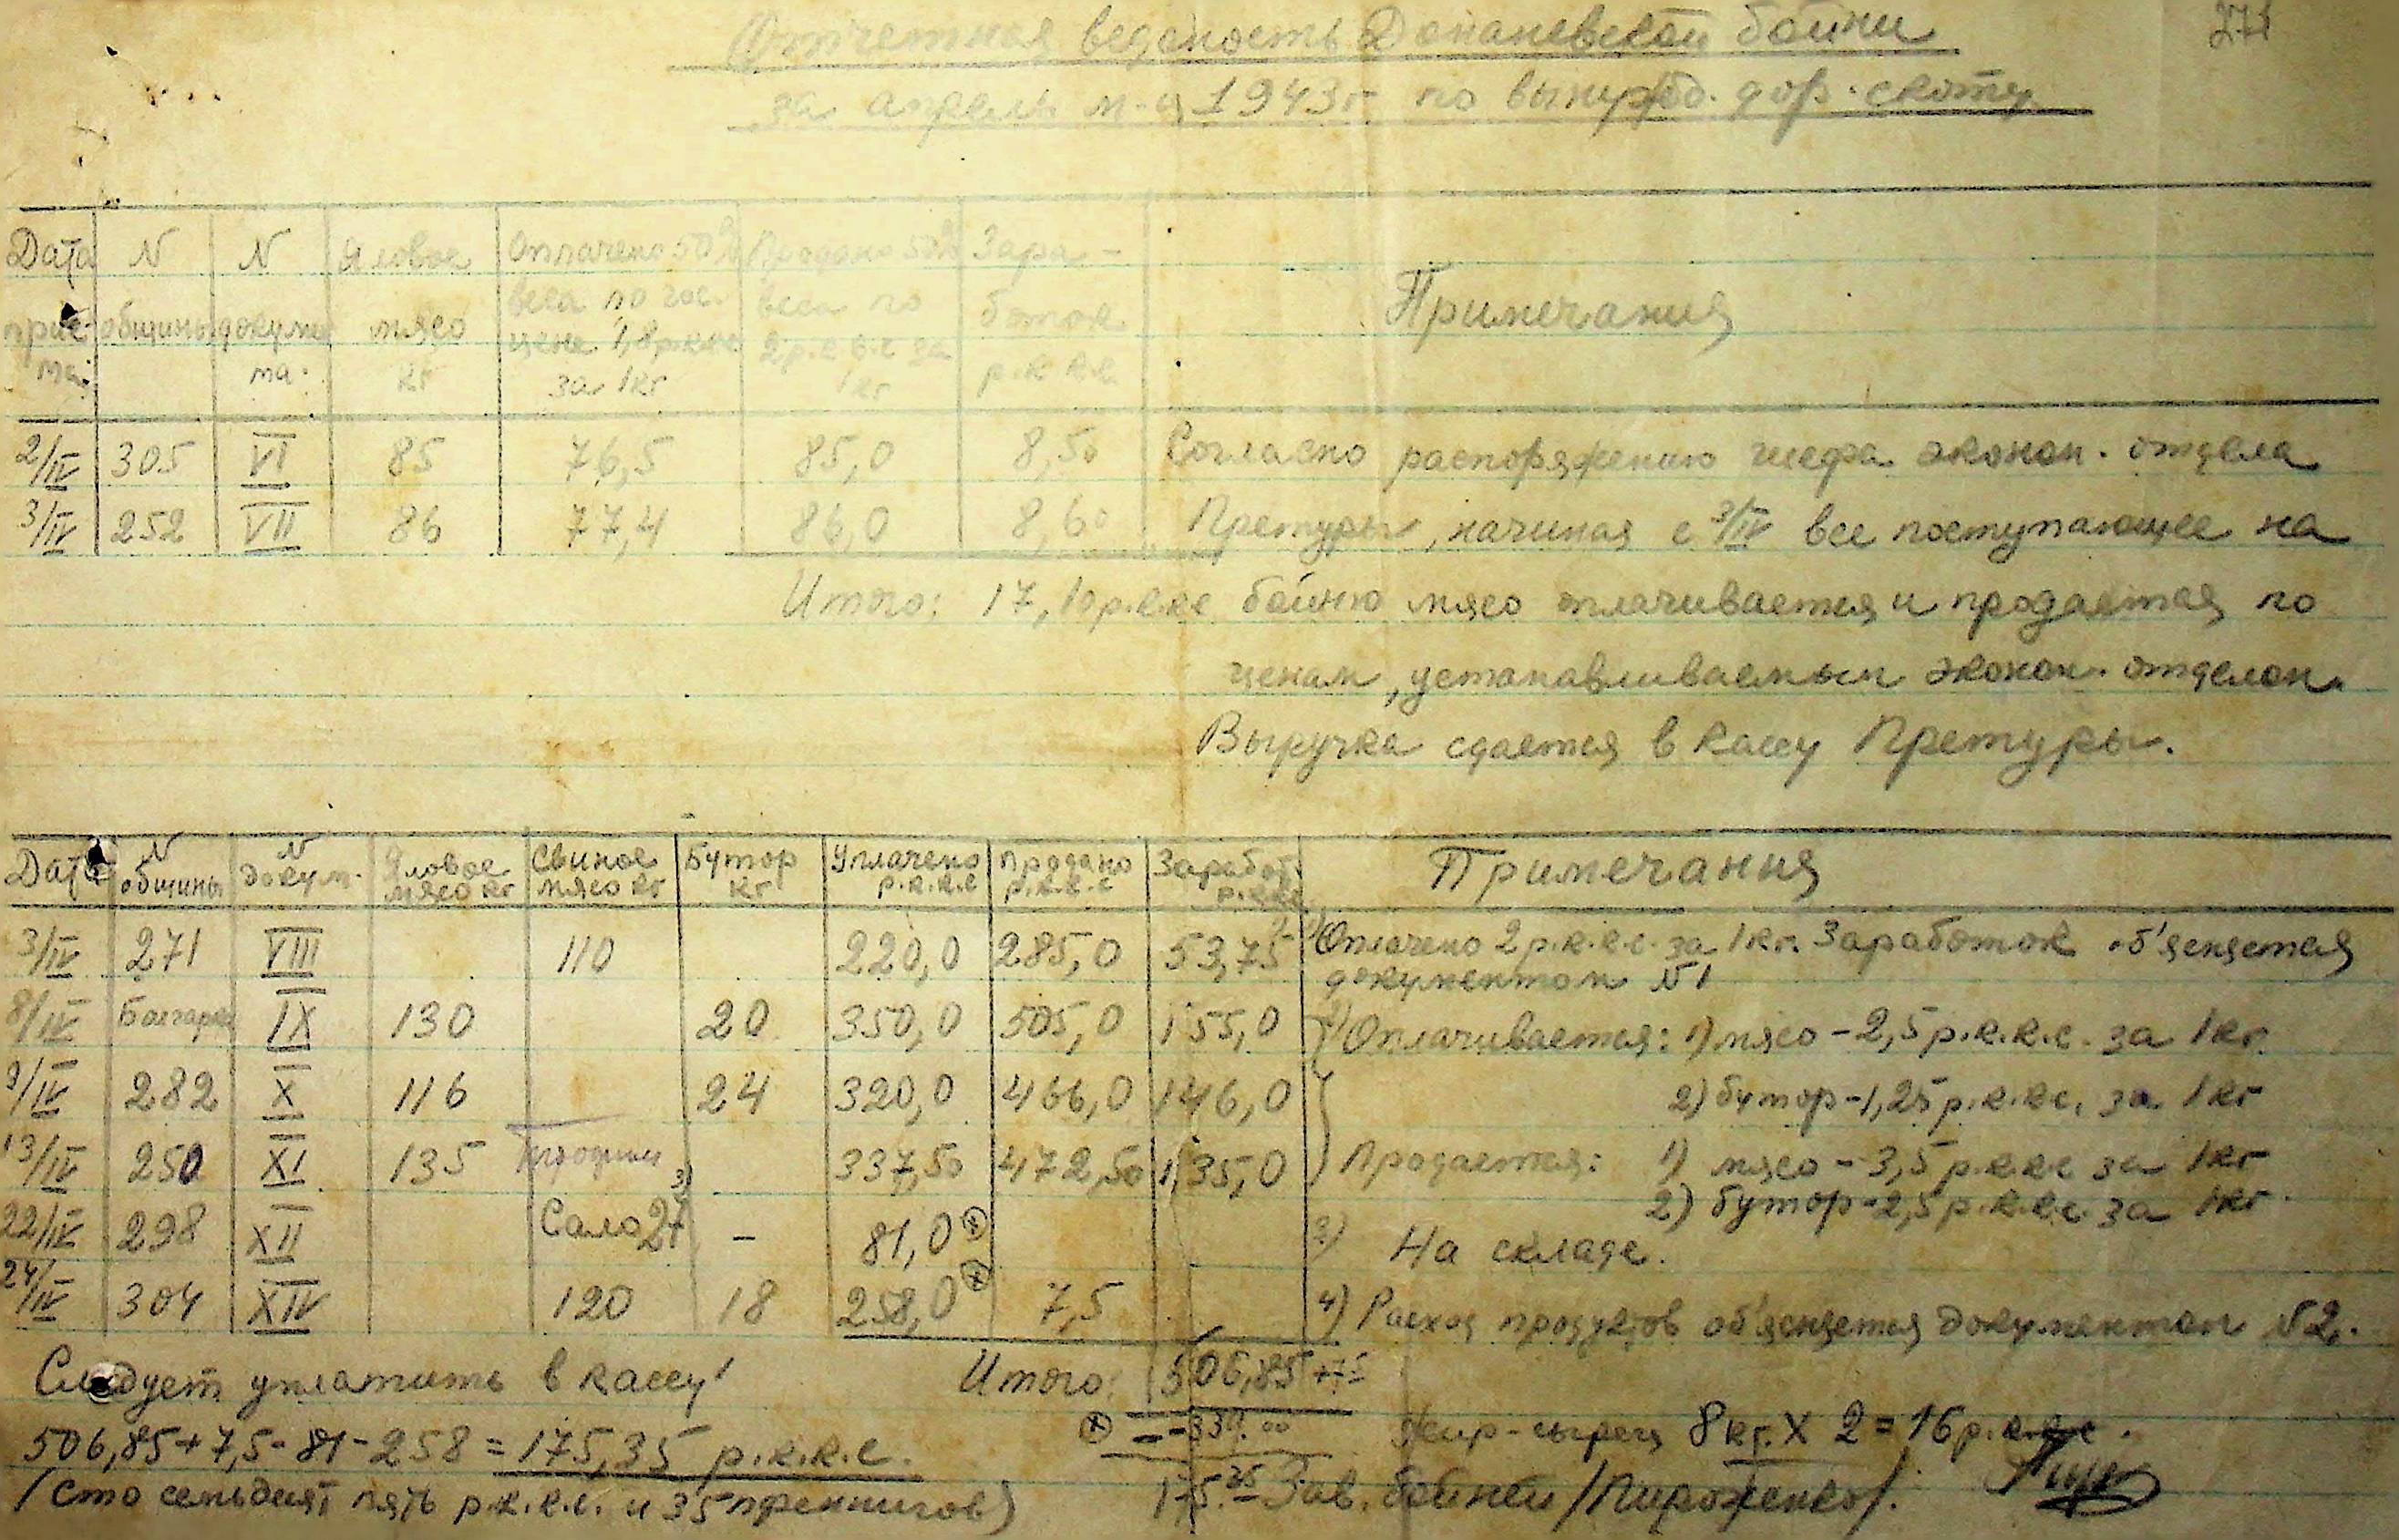 Отчетная ведомость Доманевской бойни
271
за апрель м-ц 1943 г. по вынужд. дор. скоту
Дата приема
N общины
N докумта.
Яловое мясо кг
Оплачено 50% веса по гос. цене 1,8 р.к.к.с за 1кг
Продано 50% веса по 2 р.к.к.с за 1кг
Зара- боток р.к.к.с.
Примечания
2/IV 305 VI 85 76,5 85,0 8,50 Согласно распоряжению шефа эконом. отдела
3/IV 252 VII 86 77,4 86,0 8,60 Претуры, начиная с 3/IV все поступающее на
Итого: 17,10 р.к.к.с бойню мясо оплачивается и продается по
ценам, устанавливаемым эконом. отделом.
Выручка сдается в кассу Претуры.
Дата
N общины
N докум.
Яловое мясо кг
Свиное мясо кг
Бутор кг
Уплачено р.к.к.с
Продано р.к.к.с
Заработ. р.к.к.с
Примечания
3/IV 271 VIII 110 220,0 285,0 53,75 1) Оплачено 2 р.к.к.с. за 1кг. Заработок об'ясняется
документом N1
8/IV Болгарка IX 130 20 350,0 505,0 155,0 2) Оплачивается: 1) мясо - 2,5 р.к.к.с. за 1кг.
9/IV 282 X 116 24 320,0 466,0 146,0 2) бутор - 1,25 р.к.к.с. за 1кг
13/IV 250 XI 135 337,50 472,50 135,0 Продается: 1) мясо - 3,5 р.к.к.с за 1кг
2) бутор - 2,5 р.к.к.с. за 1кг.
22/IV 298 XII Сало 27 3) - 81,0 (x) 3) На складе.
24/IV 304 XIV 120 18 258,0 (x) 7,5 4) Расход продуктов об'ясняется документом N2.
Следует уплатить в кассу Итого: 506,85 +7,5
(x) - 339.00 Жир-сырец 8кг. х 2 = 16 р.к.к.с.
506,85+7,5-81-258=175,35 р.к.к.с.
/Сто семьдесят пять р.к.к.с. и 35 пфеннигов) 175.35 Зав. бойней /Пироженко/.